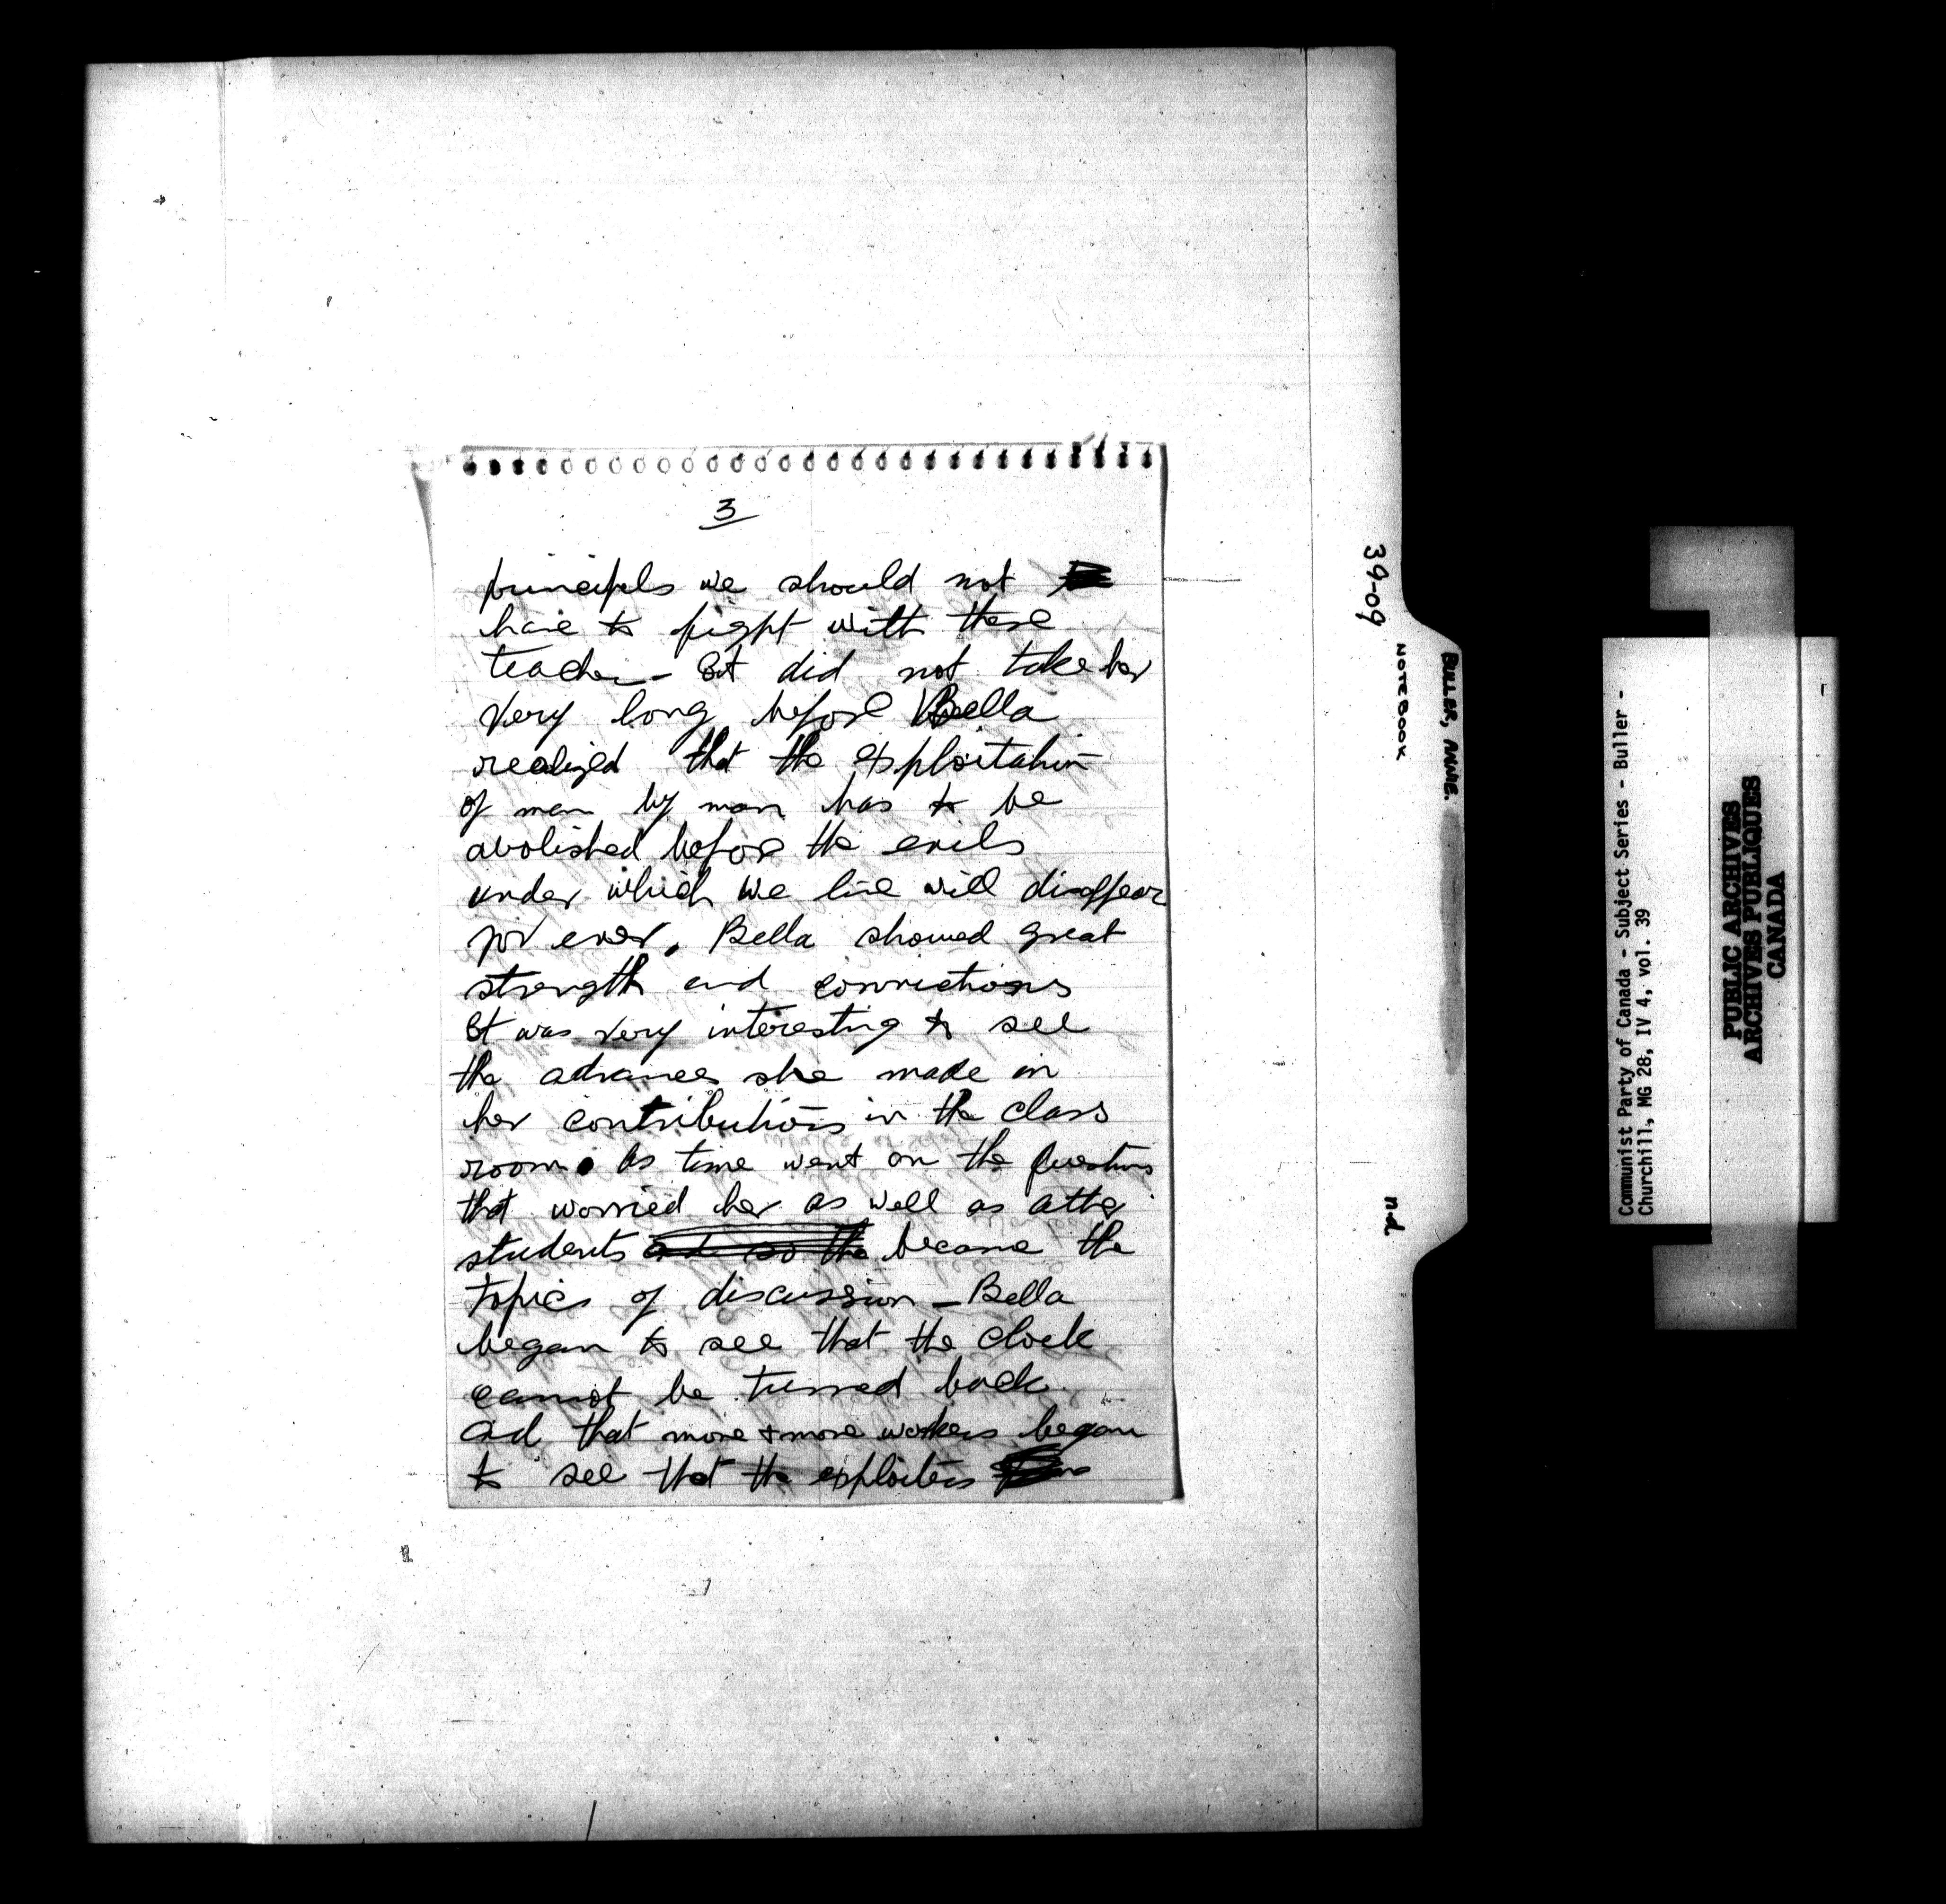 3
principels we should not
have to fight with these
teacher - It did not take her
very long before Bella
realized that the exploitation
of man by man has to be
abolished before the evils
under which we live will disappear
for ever. Bella showed great
strength and convictions
It was very interesting to see
the advances she made in
her contributions in the class
room. As time went on the questions
that worried her as well as other
students and so the became the
topics of discussion - Bella
began to see that the clock
cannot be turned back
and that more & more workers began
to see that the exploiters
39-09
NOTEBOOK
BULLER, ANNIE.
n.d.
Communist Party of Canada - Subject Series - Buller -
Churchill, MG 28, IV 4, vol. 39
PUBLIC ARCHIVES
ARCHIVES PUBLIQUES
CANADA